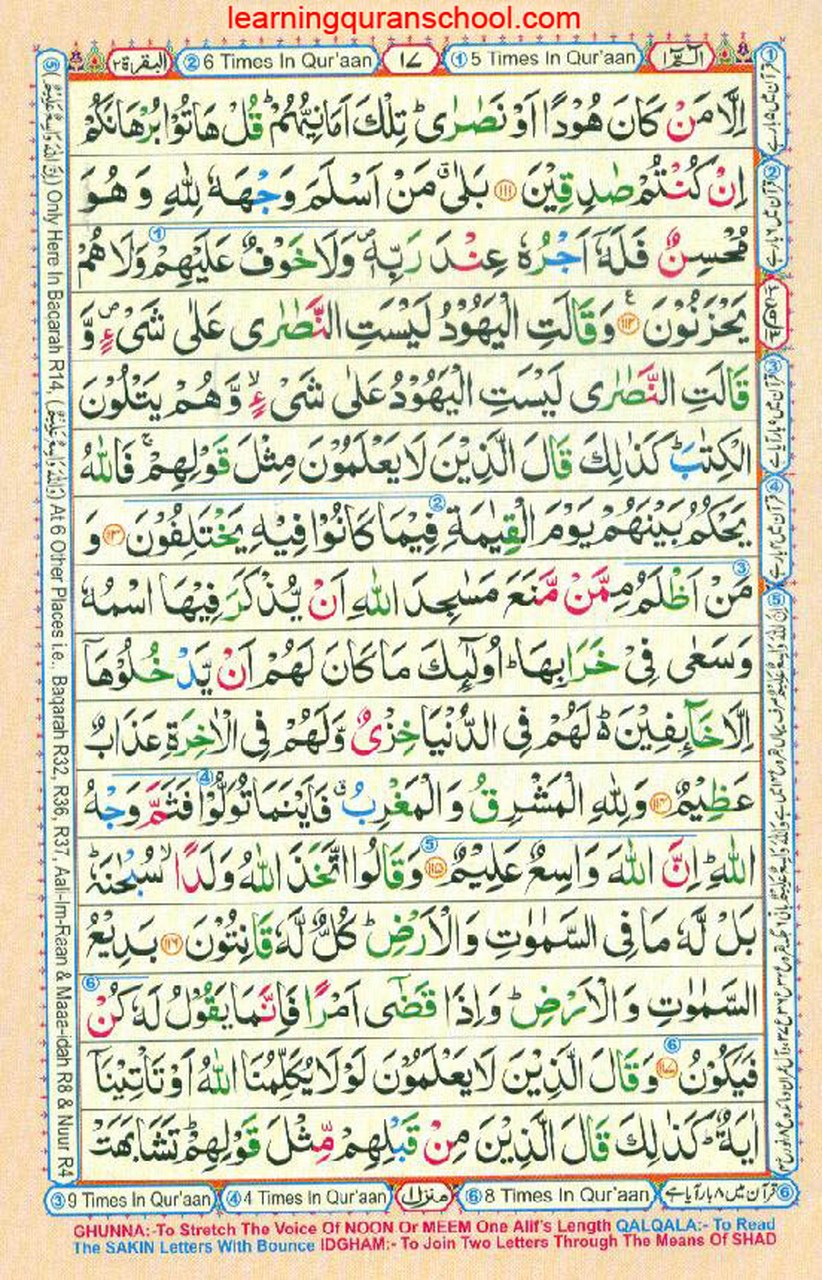 learningquranschool.com
البقرة ٢
② 6 Times In Qur'aan
١٧
① 5 Times In Qur'aan
الٓمّٓ ١
اِلَّا مَنْ كَانَ هُوْدًا اَوْ نَصٰرٰى ؕ تِلْكَ اَمَانِيُّهُمْ ؕ قُلْ هَاتُوْا بُرْهَانَكُمْ
اِنْ كُنْتُمْ صٰدِقِيْنَ ﴿۱۱۱﴾ بَلٰى ۗ مَنْ اَسْلَمَ وَجْهَهٗ لِلّٰهِ وَ هُوَ
مُحْسِنٌ فَلَهٗۤ اَجْرُهٗ عِنْدَ رَبِّهٖ ۪ وَلَا خَوْفٌ عَلَيْهِمْ وَلَا هُمْ
يَحْزَنُوْنَ ﴿۱۱۲﴾ وَقَالَتِ الْيَهُوْدُ لَيْسَتِ النَّصٰرٰى عَلٰى شَىْءٍ ۪ وَّ
قَالَتِ النَّصٰرٰى لَيْسَتِ الْيَهُوْدُ عَلٰى شَىْءٍ ۙ وَّهُمْ يَتْلُوْنَ
الْكِتٰبَ ؕ كَذٰلِكَ قَالَ الَّذِيْنَ لَا يَعْلَمُوْنَ مِثْلَ قَوْلِهِمْ ۚ فَاللّٰهُ
يَحْكُمُ بَيْنَهُمْ يَوْمَ الْقِيٰمَةِ فِيْمَا كَانُوْا فِيْهِ يَخْتَلِفُوْنَ ﴿۱۱۳﴾ وَ
مَنْ اَظْلَمُ مِمَّنْ مَّنَعَ مَسٰجِدَ اللّٰهِ اَنْ يُّذْكَرَ فِيْهَا اسْمُهٗ
وَسَعٰى فِىْ خَرَابِهَا ؕ اُولٰٓئِكَ مَا كَانَ لَهُمْ اَنْ يَّدْخُلُوْهَاۤ
اِلَّا خَآئِفِيْنَ ؕ لَهُمْ فِى الدُّنْيَا خِزْىٌ وَّلَهُمْ فِى الْاٰخِرَةِ عَذَابٌ
عَظِيْمٌ ﴿۱۱۴﴾ وَلِلّٰهِ الْمَشْرِقُ وَالْمَغْرِبُ ۗ فَاَيْنَمَا تُوَلُّوْا فَثَمَّ وَجْهُ
اللّٰهِ ؕ اِنَّ اللّٰهَ وَاسِعٌ عَلِيْمٌ ﴿۱۱۵﴾ وَقَالُوا اتَّخَذَ اللّٰهُ وَلَدًا ۙ سُبْحٰنَهٗ ؕ
بَلْ لَّهٗ مَا فِى السَّمٰوٰتِ وَالْاَرْضِ ؕ كُلٌّ لَّهٗ قَانِتُوْنَ ﴿۱۱۶﴾ بَدِيْعُ
السَّمٰوٰتِ وَالْاَرْضِ ؕ وَاِذَا قَضٰٓى اَمْرًا فَاِنَّمَا يَقُوْلُ لَهٗ كُنْ
فَيَكُوْنُ ﴿۱۱۷﴾ وَقَالَ الَّذِيْنَ لَا يَعْلَمُوْنَ لَوْلَا يُكَلِّمُنَا اللّٰهُ اَوْ تَاْتِيْنَاۤ
اٰيَةٌ ؕ كَذٰلِكَ قَالَ الَّذِيْنَ مِنْ قَبْلِهِمْ مِّثْلَ قَوْلِهِمْ ؕ تَشَابَهَتْ
⑤ (اِنَّ اللّٰهَ وَاسِعٌ عَلِيْمٌ) Only Here In Baqarah R14, (وَاللّٰهُ وَاسِعٌ عَلِيْمٌ) At 6 Other Places i.e., Baqarah R32, R36, R37, Aali-Im-Raan & Maaa-idah R8 & Nuur R4
① قرآن میں ۵ بار ہے
② قرآن میں ۶ بار ہے
③ قرآن میں ۹ بار آیا ہے
④ قرآن میں ۴ بار ہے
③ 9 Times In Qur'aan
④ 4 Times In Qur'aan
منزل ١
⑥ 8 Times In Qur'aan
⑥ قرآن میں ۸ بار آیا ہے
GHUNNA:-To Stretch The Voice Of NOON Or MEEM One Alif's Length QALQALA:- To Read
The SAKIN Letters With Bounce IDGHAM:- To Join Two Letters Through The Means Of SHAD